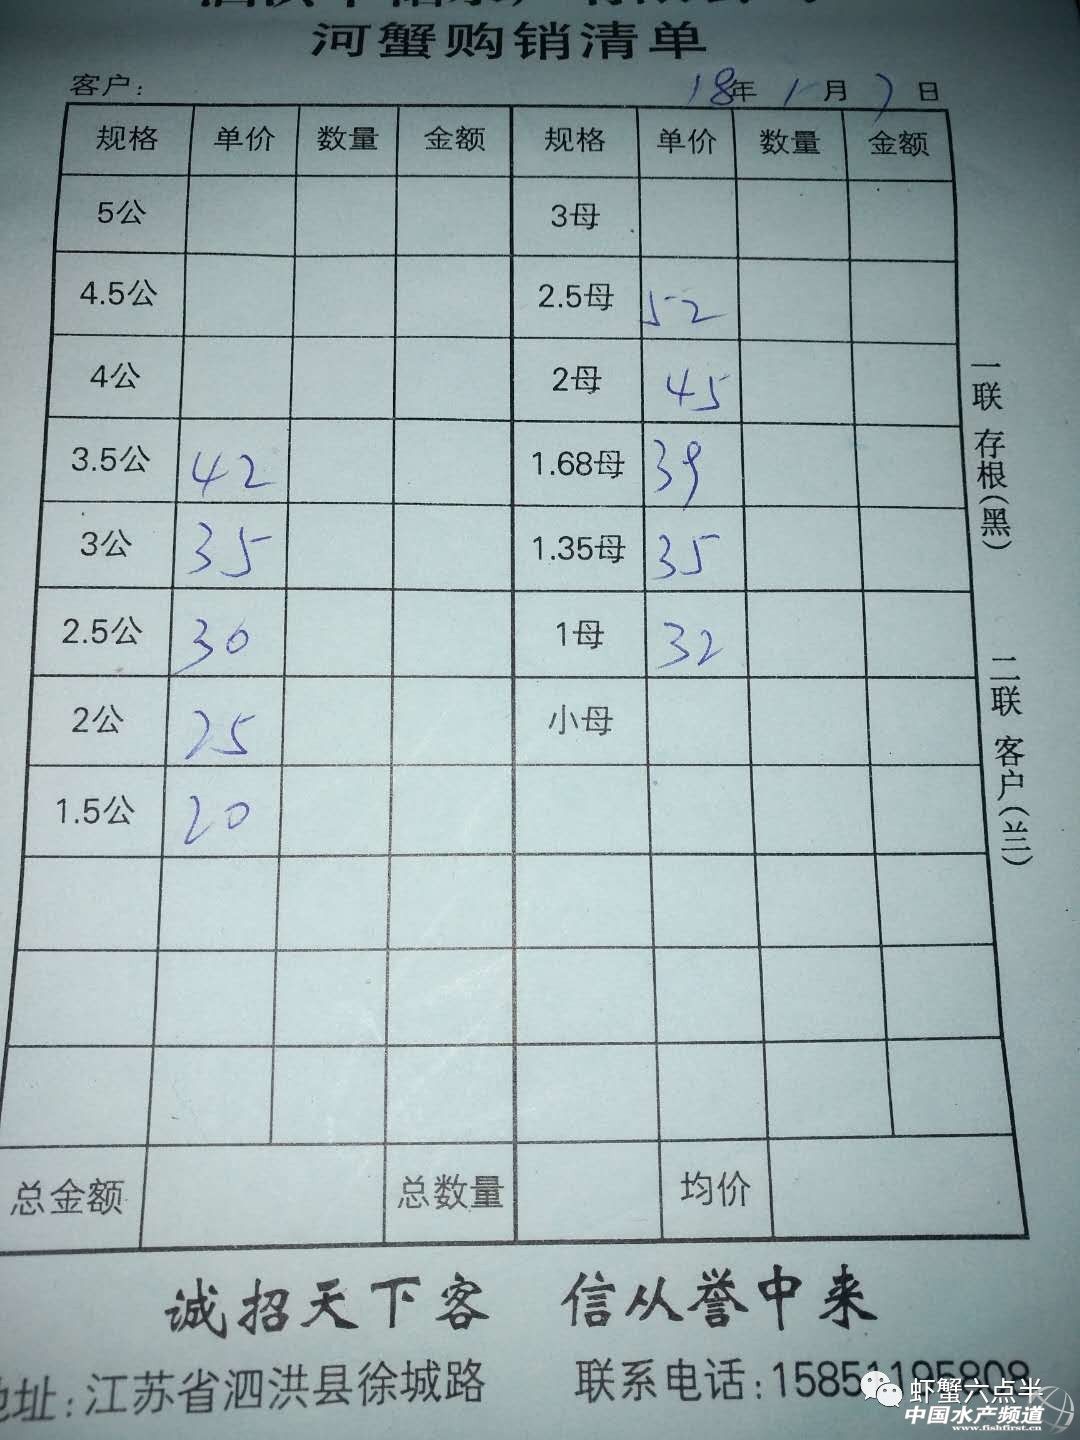 河蟹购销清单
客户: 18年 1月 7日
规格 单价 数量 金额 规格 单价 数量 金额
5公 3母
4.5公 2.5母 52
4公 2母 45
3.5公 42 1.68母 39
3公 35 1.35母 35
2.5公 30 1母 32
2公 25 小母
1.5公 20
总金额 总数量 均价
一联 存根(黑) 二联 客户(兰)
诚招天下客 信从誉中来
地址:江苏省泗洪县徐城路 联系电话:15851195808
虾蟹六点半
中国水产频道
www.fishfirst.cn